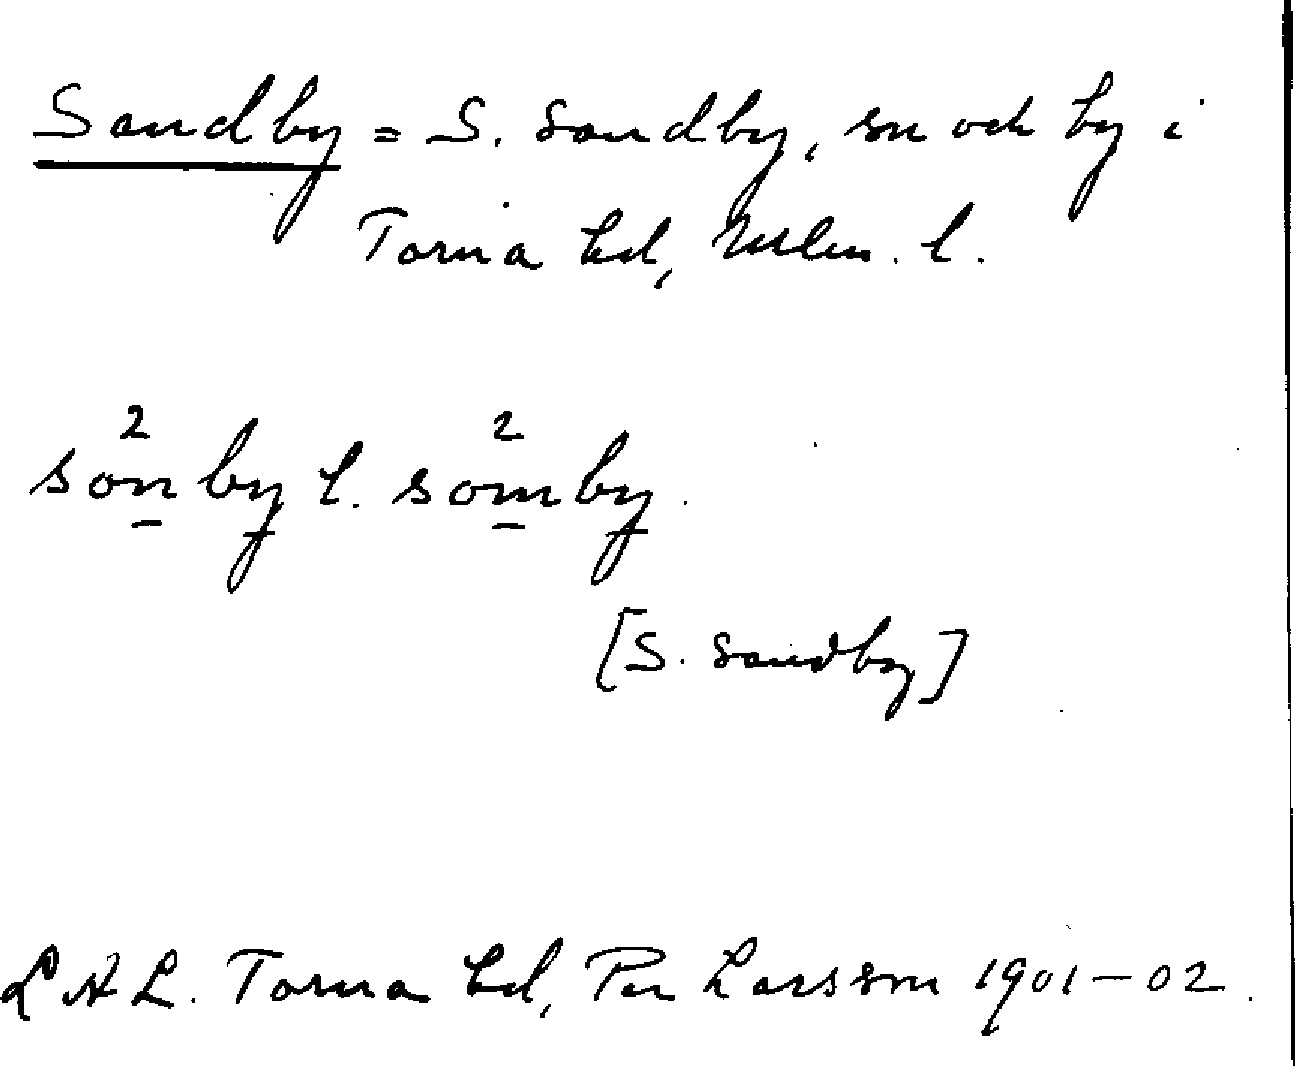 Sandby = S. Sandby, sn och by i
Torna hd, Mlm. l.
son²by l. som²by.
[S. Sandby]
LAL. Torna hd, Per Larsson 1901-02.